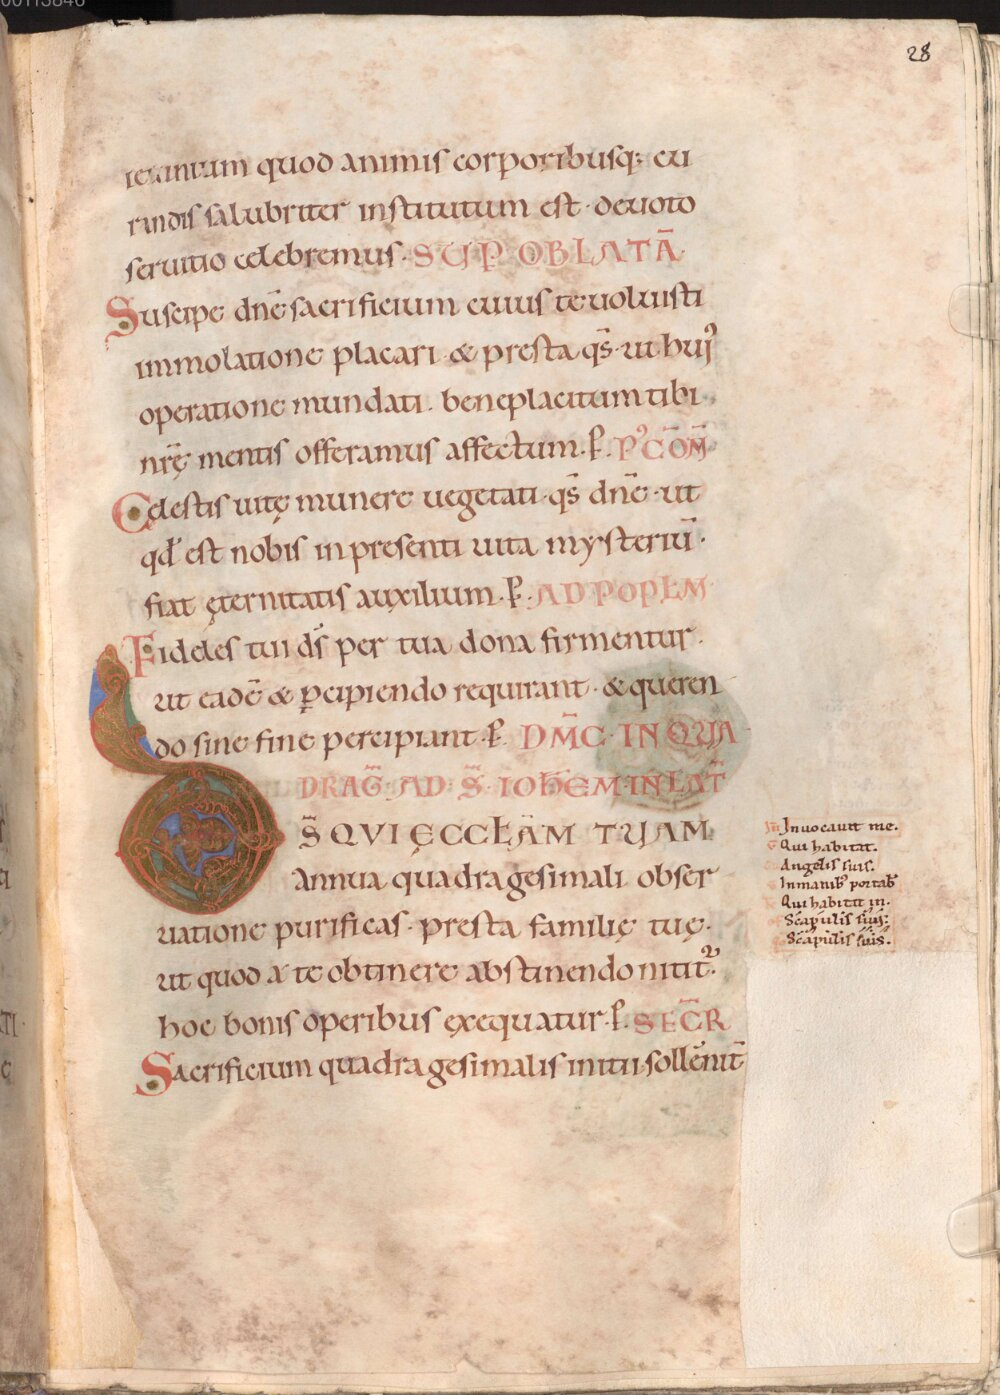 00113846
28
ieiunium quod animis corporibusq; cu
randis salubriter institutum est · deuoto
seruitio celebremus · SUP OBLATĀ ·
Suscipe dn̄e sacrificium cuius te uoluisti
immolatione placari · & presta q̄s · ut huiꝰ
operatione mundati · beneplacitum tibi
nr̄ę mentis offeramus affectum · ꝑ · Pꝰ CŌM̄
Celestis uitę munere uegetati · q̄s dn̄e · ut
qđ est nobis in presenti uita mysteriū ·
fiat ęternitatis auxilium · ꝑ · AD POPŁM
Fideles tui ds̄ per tua dona firmentur ·
ut eadē & ꝑcipiendo requirant · & queren
do sine fine percipiant · ꝑ · DM̄C · IN QUA
DRAḠ · AD · S̄ · IOHEM · IN LAT̄
D̄S QVI ĘCCŁAM TUAM
Annua quadragesimali obser
uatione purificas · presta familię tuę ·
ut quod a te obtinere abstinendo nititᷣ ·
hoc bonis operibus exequatur · ꝑ · SEC̄R
Sacrificium quadragesimalis initii sollēnit̄
Inuocauit me.
Qui habitat.
Angelis suis.
In manibꝰ portabꝰ
Qui habitat in.
Scapulis suis:
Scapulis suis.